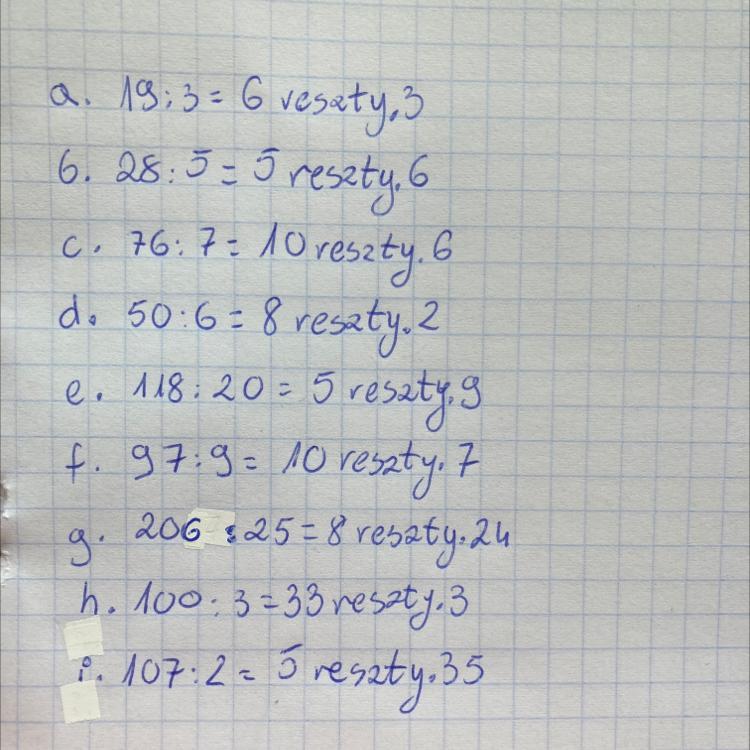 a. 19:3 = 6 reszty.3
b. 28:5 = 5 reszty.6
c. 76:7 = 10 reszty.6
d. 50:6 = 8 reszty.2
e. 118:20 = 5 reszty.9
f. 97:9 = 10 reszty.7
g. 206:25 = 8 reszty.24
h. 100:3 = 33 reszty.3
i. 107:2 = 5 reszty.35